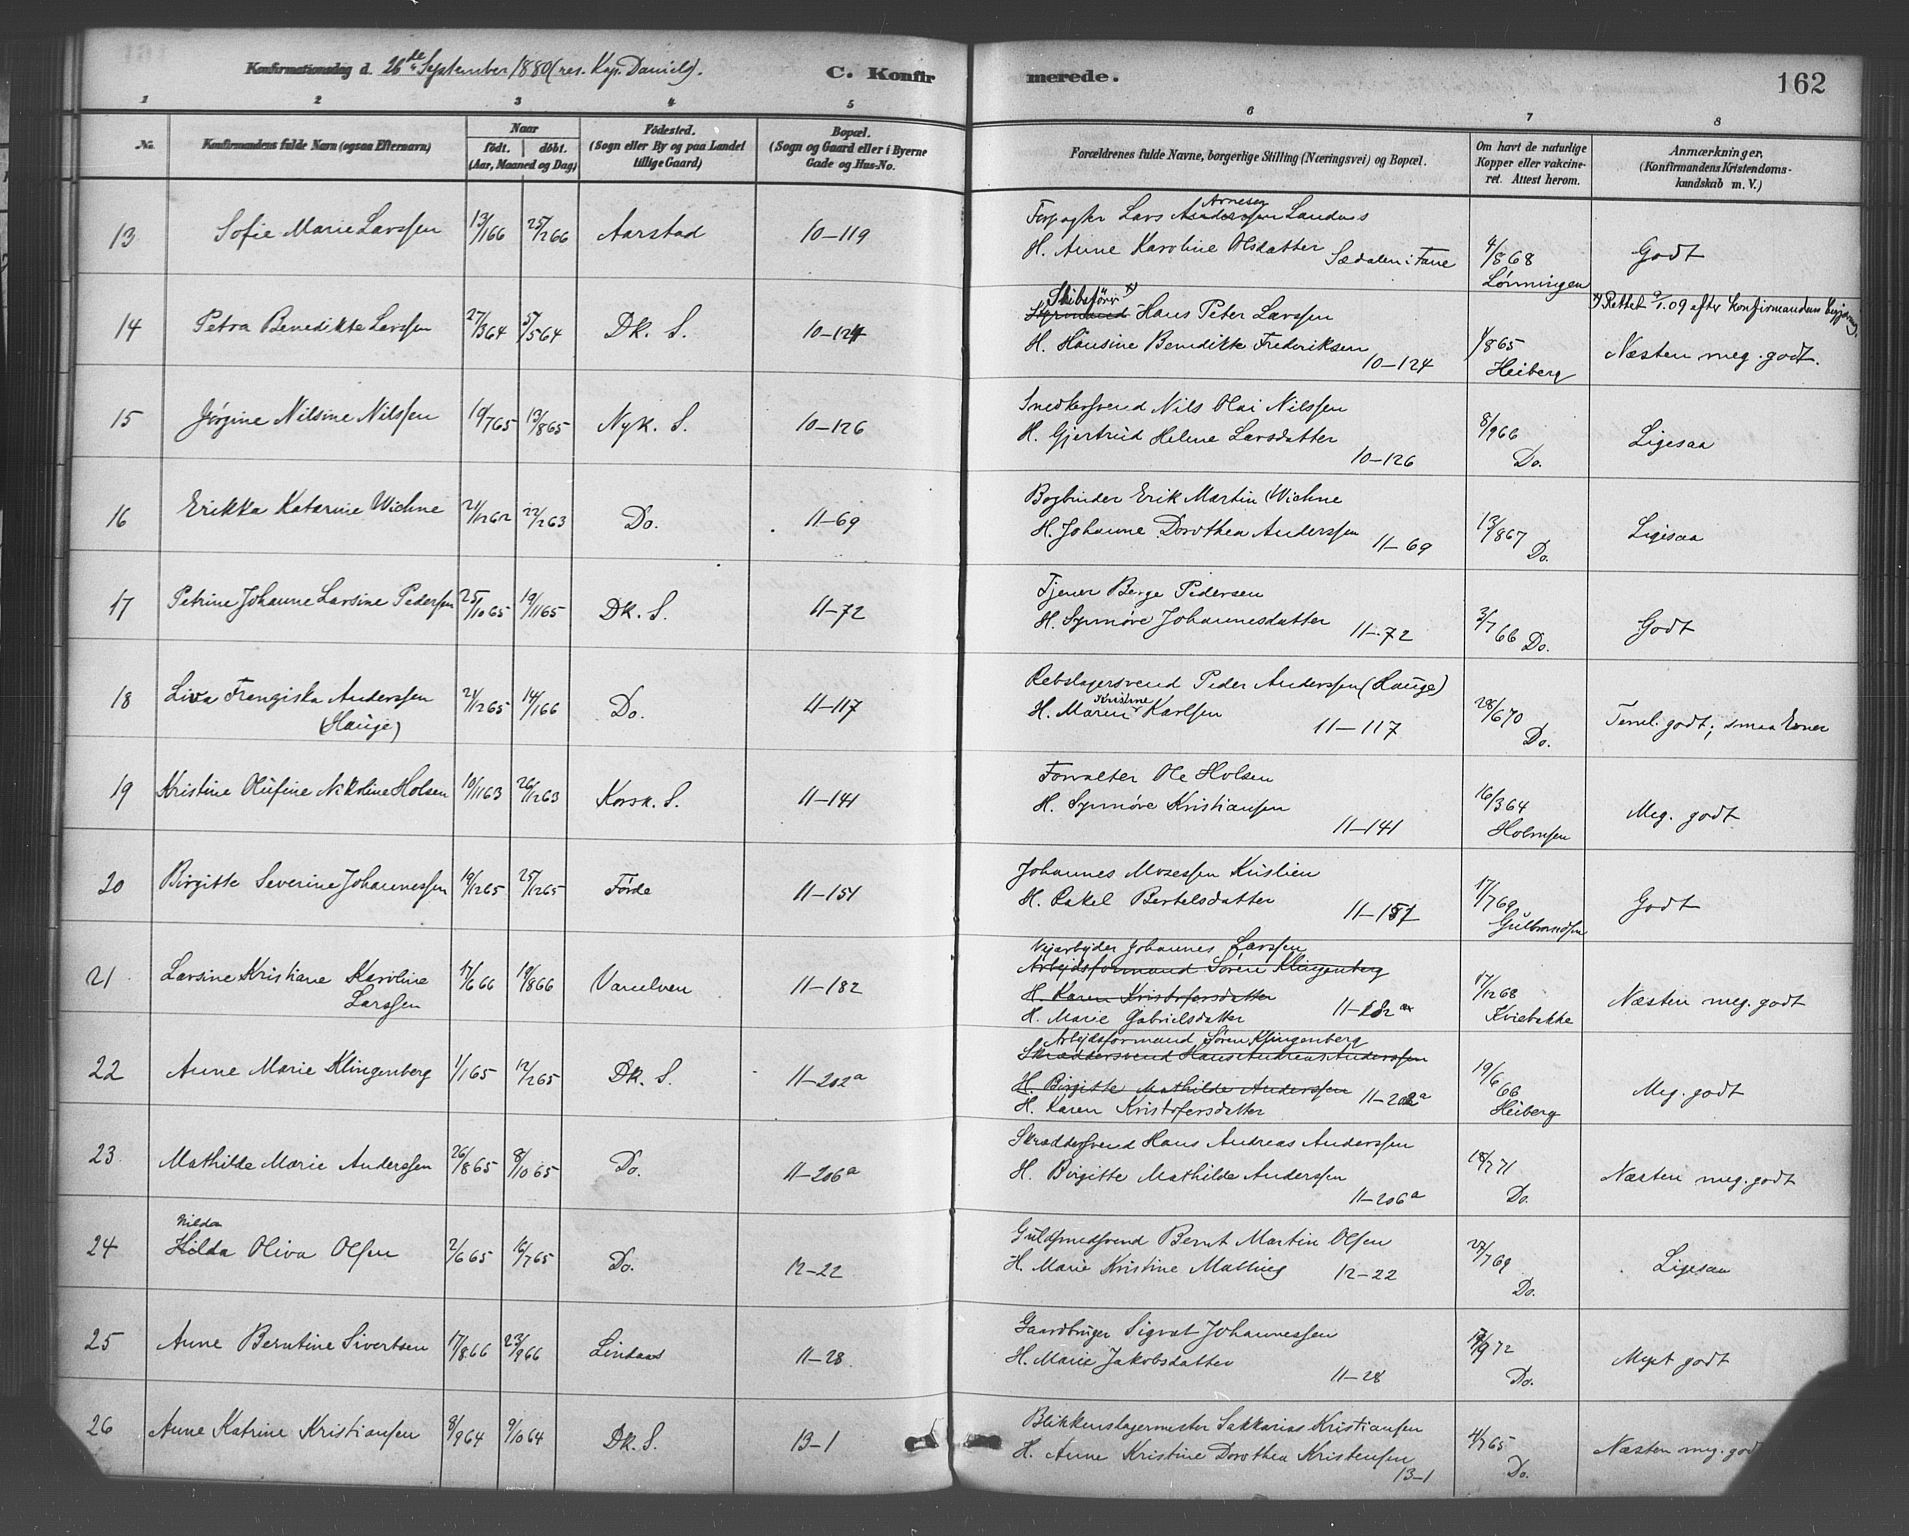 Konfirmationsdag d. 26de September 1880 (res. Kap. Daniels). C. Konfirmerede. 162
1 2 3 4 5 6 7 8
No. Konfirmandens fulde Navn (ogsaa Efternavn) Naar født. døbt. (Aar, Maaned og Dag) Fødested. (Sogn eller By og paa Landet tillige Gaard) Bopæl. (Sogn og Gaard eller i Byerne Gade og Hus-No. Forældrenes fulde Navne, borgerlige Stilling (Næringsvei) og Bopæl. Om havt de naturlige Kopper eller vakcineret. Attest herom. Anmærkninger, (Konfirmandens Kristendomskundskab m. V.)
13 Sofie Marie Larssen 13/1 66 25/2 66 Aarstad 10-119 Forpagter Lars Arnesen Landaas
H. Anne Karoline Olsdatter Sædalen i Fane 4/8 68 Lønningen Godt
14 Petra Benedikte Larssen 27/3 64 5/5 64 Dk. S. 10-124 Skibsfører x) Styrmand Hans Peter Larssen
H. Hansine Benedikte Frederiksen 10-124 1/8 65 Heiberg x) Rettet 9/1.09 efter Konfirmandens begjæring. Næsten meg. godt.
15 Jørgine Nilsine Nilssen 10/7 65 13/8 65 Nyk. S. 10-126 Snedkersvend Nils Olai Nilssen
H. Gjertrud Helene Larsdatter 10-126 8/9 66 Do. Ligesaa
16 Erikka Katarine Wichne 21/12 62 22/2 63 Do. 11-69 Bogbinder Erik Martin Wichne
H. Johanne Dorothea Anderssen 11-69 13/8 67 Do. Ligesaa
17 Petrine Johanne Larsine Pedersen 25/10 65 19/11 65 Dk. S. 11-72 Tjener Berge Pedersen
H. Synnøve Johannesdatter 11-72 3/7 66 Do. Godt
18 Liva Franziska Anderssen (Hauge) 21/12 65 14/1 66 Do. 11-117 Rebslagersvend Peder Anderssen (Hauge)
H. Maren Kristine Karlsen 11-117 28/6 70 Do. Teml. godt; smaa Evner
19 Kristine Olufine Nikoline Holsen 10/11 63 26/12 63 Korsk. S. 11-141 Forvalter Ole Holsen
H. Synnøve Kristiansen 11-141 16/3 64 Holmsen Meg. godt
20 Birgitte Severine Johannessen 19/12 65 25/12 65 Førde 11-151 Johannes Mosessen
H. Rakel Bertelsdatter 11-151 17/7 69 Gulbrandsen Godt
21 Larsine Kristiane Karoline Larssen 17/6 66 19/8 66 Vanelven 11-182 Veiarbeider Johannes Larssen
Arbeidsformand Søren Klingenberg
H. Karen Kristofersdatter
H. Marie Gabrielsdatter 11-182 17/12 68 Kviebakke Næsten meg. godt
22 Anne Marie Klingenberg 1/1 65 12/2 65 Dk. S. 11-202a Arbeidsformand Søren Klingenberg
Skræddersvend Hans Andreas Anderssen
H. Birgitte Mathilde Anderssen 11-202a
H. Karen Kristofersdatter 19/6 66 Heiberg Meg. godt
23 Mathilde Marie Anderssen 26/8 65 8/10 65 Do. 11-206a Skræddersvend Hans Andreas Anderssen
H. Birgitte Mathilde Anderssen 11-206a 18/7 71 Do. Næsten meg. godt
24 Hilda Hilda Oliva Olsen 2/6 65 16/7 65 Do. 12-22 Guldsmedsvend Bernt Martin Olsen
H. Marie Kristine Mathing 12-22 27/7 69 Do. Ligesaa
25 Anne Berntine Sivertsen 17/8 66 23/9 66 Lindaas 11-28 Gaardbruger Sigvat Johannessen
H. Marie Jakobsdatter 11-28 /9 72 Do. Meget godt
26 Anne Katrine Kristiansen 8/9 64 9/10 64 Dk. S. 13-1 Blikkenslagermester Sakkarias Kristiansen
H. Anne Kristine Dorothea Kristensen 13-1 4/7 65 Do. Næsten meg. godt